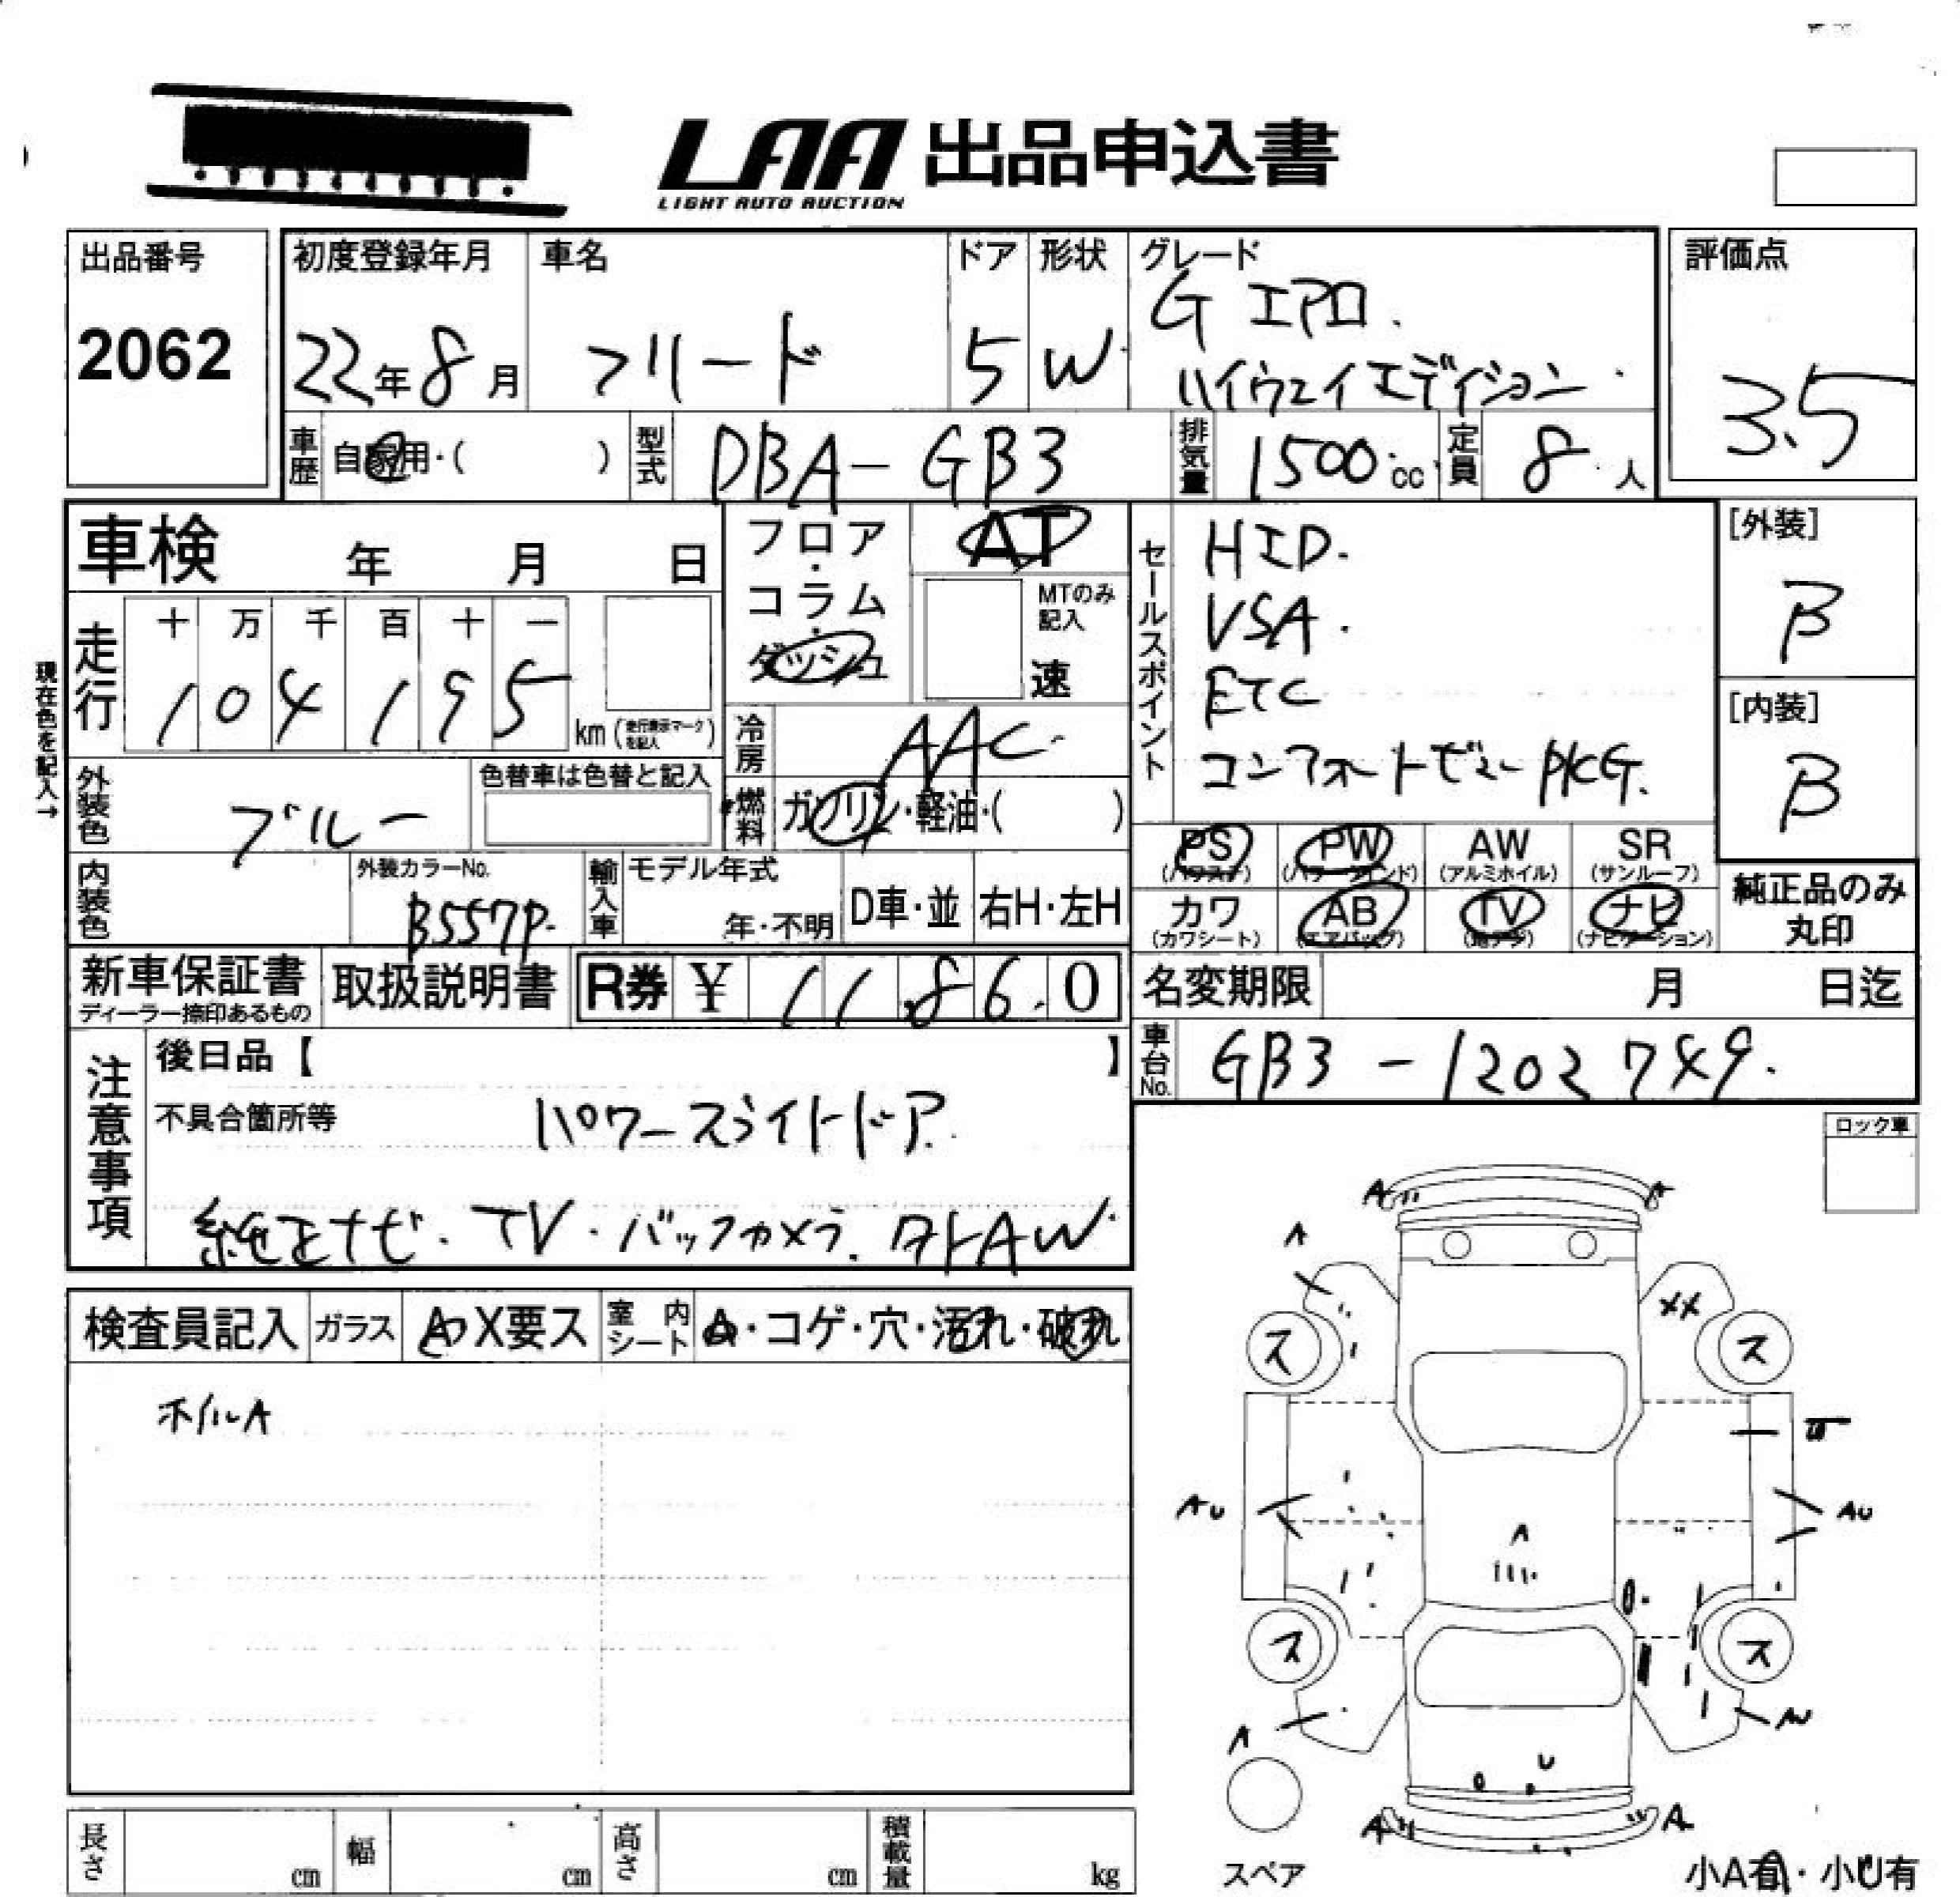 LAA 出品申込書
LIGHT AUTO AUCTION
出品番号
2062
初度登録年月
22年8月
車名
フリード
ドア
5
形状
W
グレード
G エアロ.
ハイウェイエディション
評価点
3.5
車歴
自家用・( )
型式
DBA-GB3
排気量
1500cc
定員
8人
車検 年 月 日
フロア・コラム・ダッシュ
AT
MTのみ記入
速
現在色を記入→
走行
十 万 千 百 十 一
1 0 4 1 9 5
km(走行表示マークを記入)
冷房
AAC
外装色
ブルー
色替車は色替と記入
燃料
ガソリン・軽油・( )
内装色
外装カラーNo.
B557P
輸入車
モデル年式
年・不明
D車・並
右H・左H
セールスポイント
HID.
VSA.
ETC
コンフォートビューPKG.
[外装]
B
[内装]
B
PS PW AW SR
(パワステ) (パワーウインド) (アルミホイル) (サンルーフ)
カワ AB TV ナビ
(カワシート) (エアバッグ) (地デジ) (ナビゲーション)
純正品のみ
丸印
新車保証書
ディーラー捺印あるもの
取扱説明書
R券 ¥ 11860
名変期限 月 日迄
車台No.
GB3-1202749.
注意事項
後日品【 】
不具合箇所等
パワースライドドア.
純正ナビ・TV・バックカメラ.
AW
ロック車
検査員記入
ガラス
A X要ス
室内シート
・コゲ・穴・汚れ・破れ
ホイルA
A A
A
XX
ス ス
AU AU
A
ス ス
A AU
U
A A
スペア
小A有・小U有
長さ cm
幅 cm
高さ cm
積載量 kg